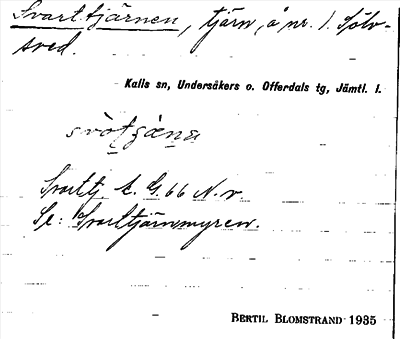 Svarttjärnen, tjärn, å nr. 1. Sölv-
sved.
Kalls sn, Undersåkers o. Offerdals tg, Jämtl. l.
Svarttj. A. G. 66 N. v.
Se: Svarttjärnmyren.
BERTIL BLOMSTRAND 1935